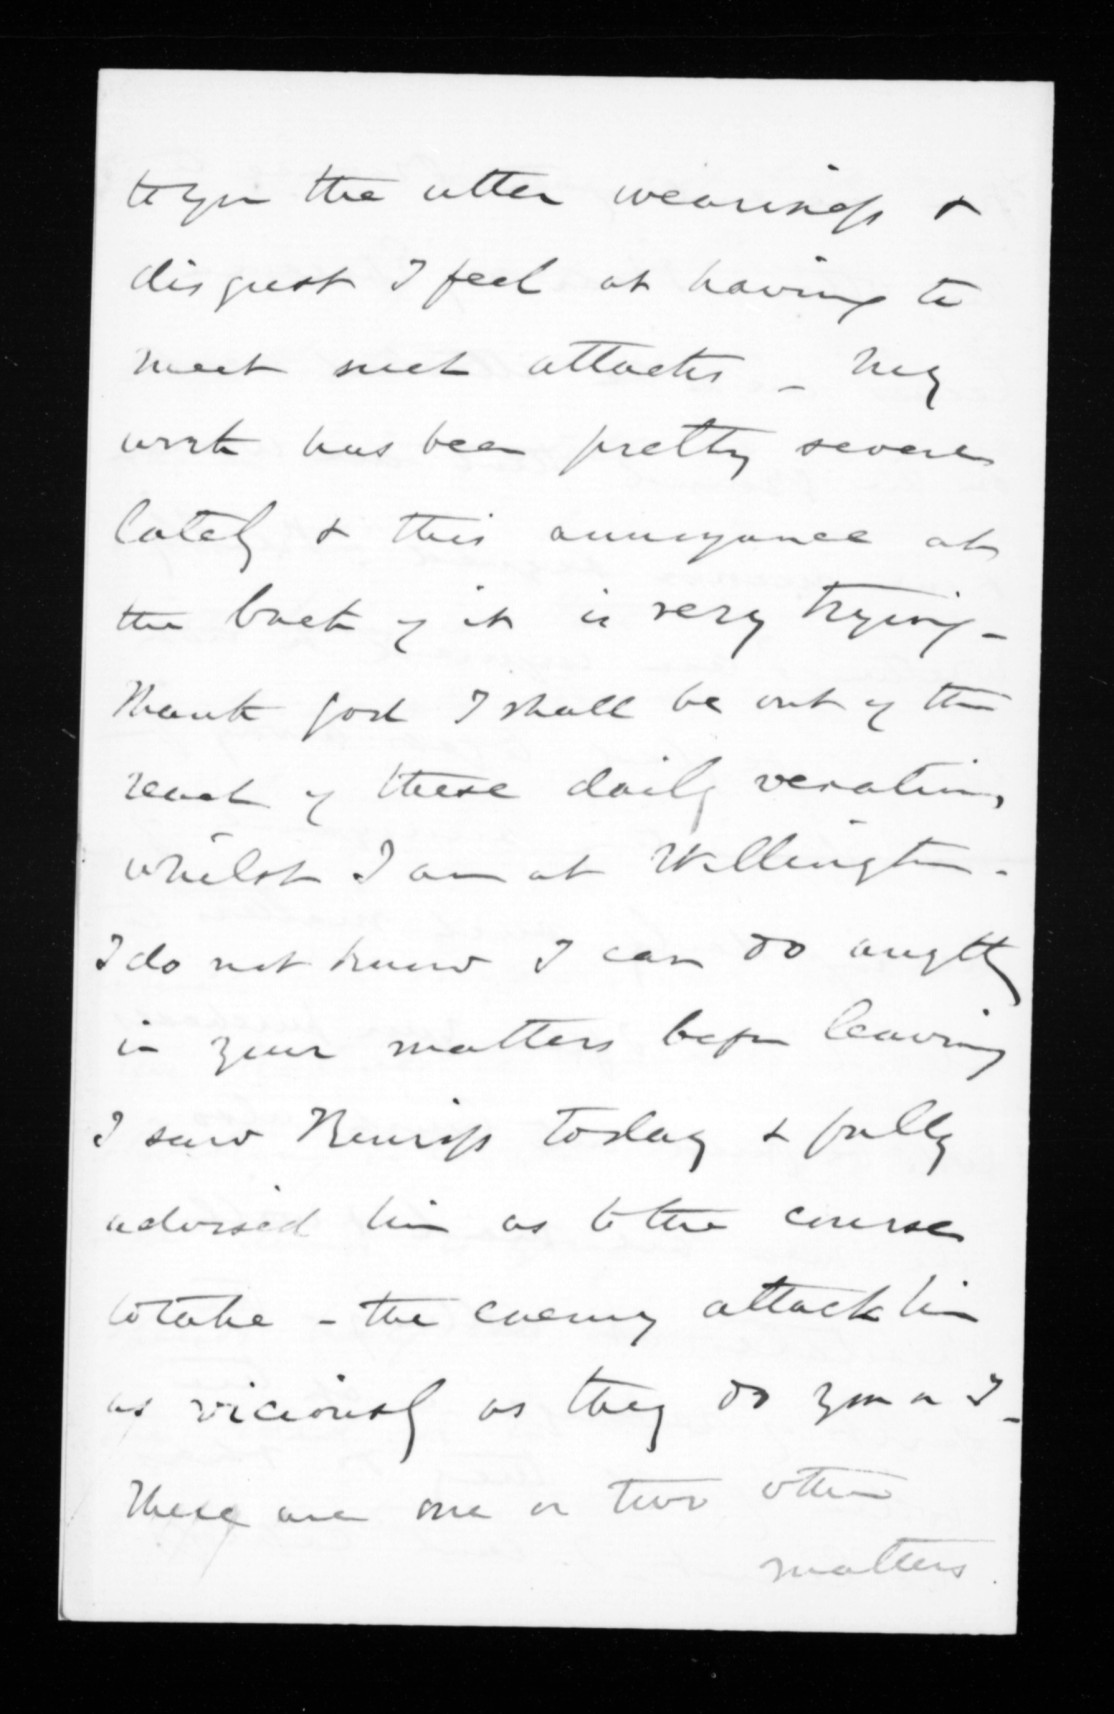 to you the utter weariness &
disgust I feel at having to
meet such attacks - My
work has been pretty severe
lately & this annoyance at
the back of it is very trying -
Thank God I shall be out of the
reach of these daily vexations,
whilst I am at Wellington -
I do not know I can do anythg
in your matters before leaving
I saw today & fully
advised him as to the course
to take - the enemy attack him
as viciously as they do you or I -
There are one or two other
matters